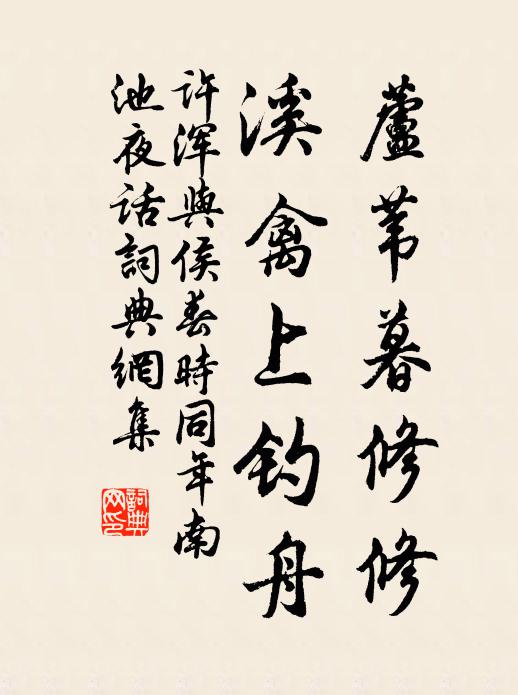 蘆葦暮修修
溪禽上钓舟
许浑與侯春時同年南
池夜话詞典網集
詞典网印